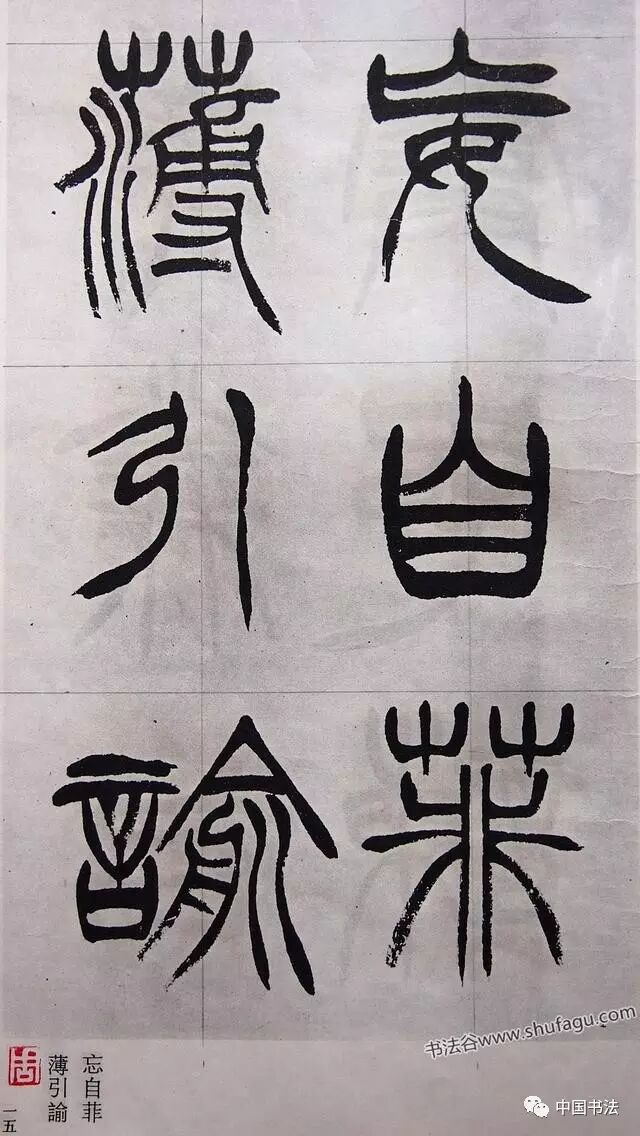 妄自菲
薄引諭
忘自菲
薄引諭
一五
书法谷www.shufagu.com
中国书法